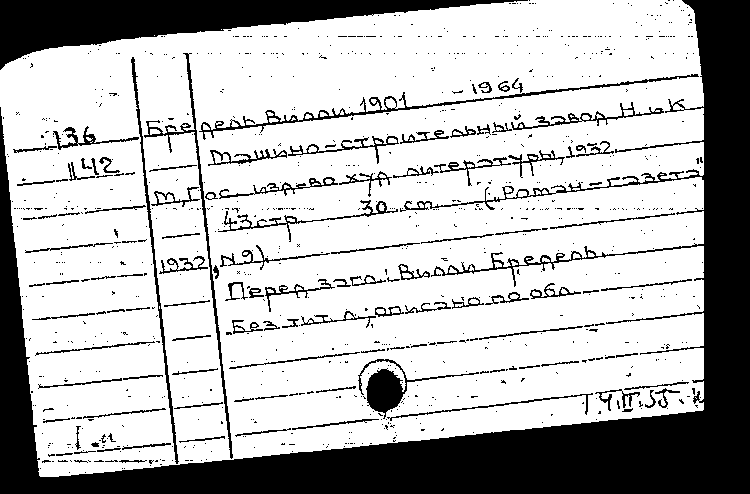 136
1142
Бредель, Вилли, 1901 - 1964
Машино-строительный завод Н. и К
М, Гос. изд-во худ. литературы, 1932.
43стр. 30 см. - („Роман-газета",
1932, N9).
Перед загл: Вилли Бредель.
Без тит. л; описано по обл.
14.III.55.